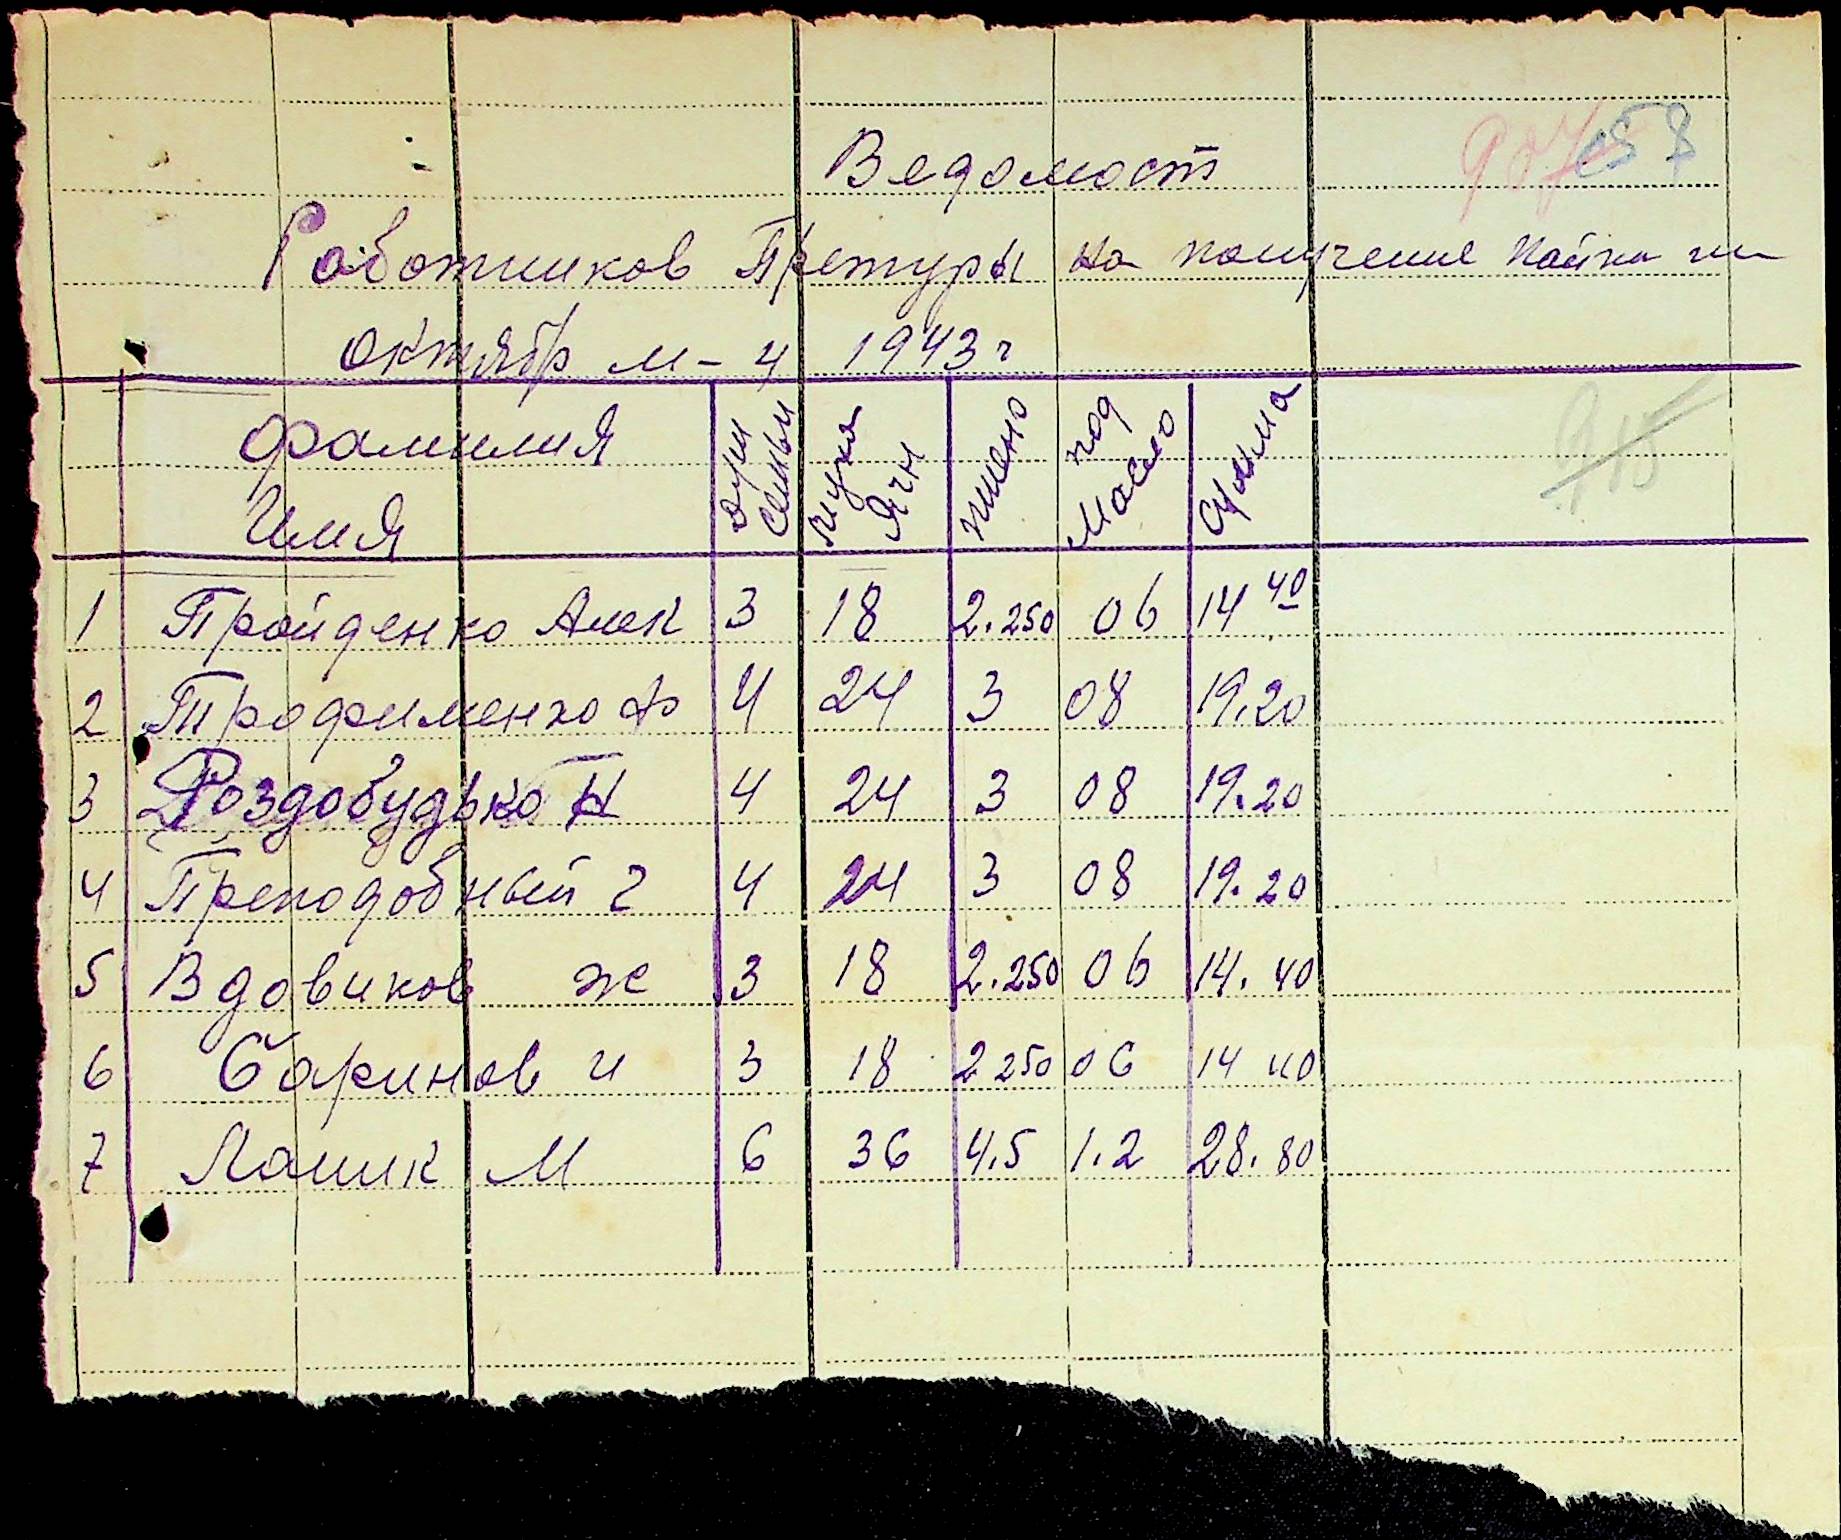 Ведомост
Работников Претуры на получение пайка на
октябр м-ц 1943 г
фамилия Имя душ семьи мука ячн пшено под масло сумма
1 Пройденко Алек 3 18 2.250 06 14 40
2 Трофименко Ф 4 24 3 08 19.20
3 Роздобудько Н 4 24 3 08 19.20
4 Преподобный г 4 24 3 08 19.20
5 Вдовиков ж 3 18 2.250 06 14.40
6 Баринов и 3 18 2 250 06 14 40
7 Лашик М 6 36 4.5 1.2 28.80